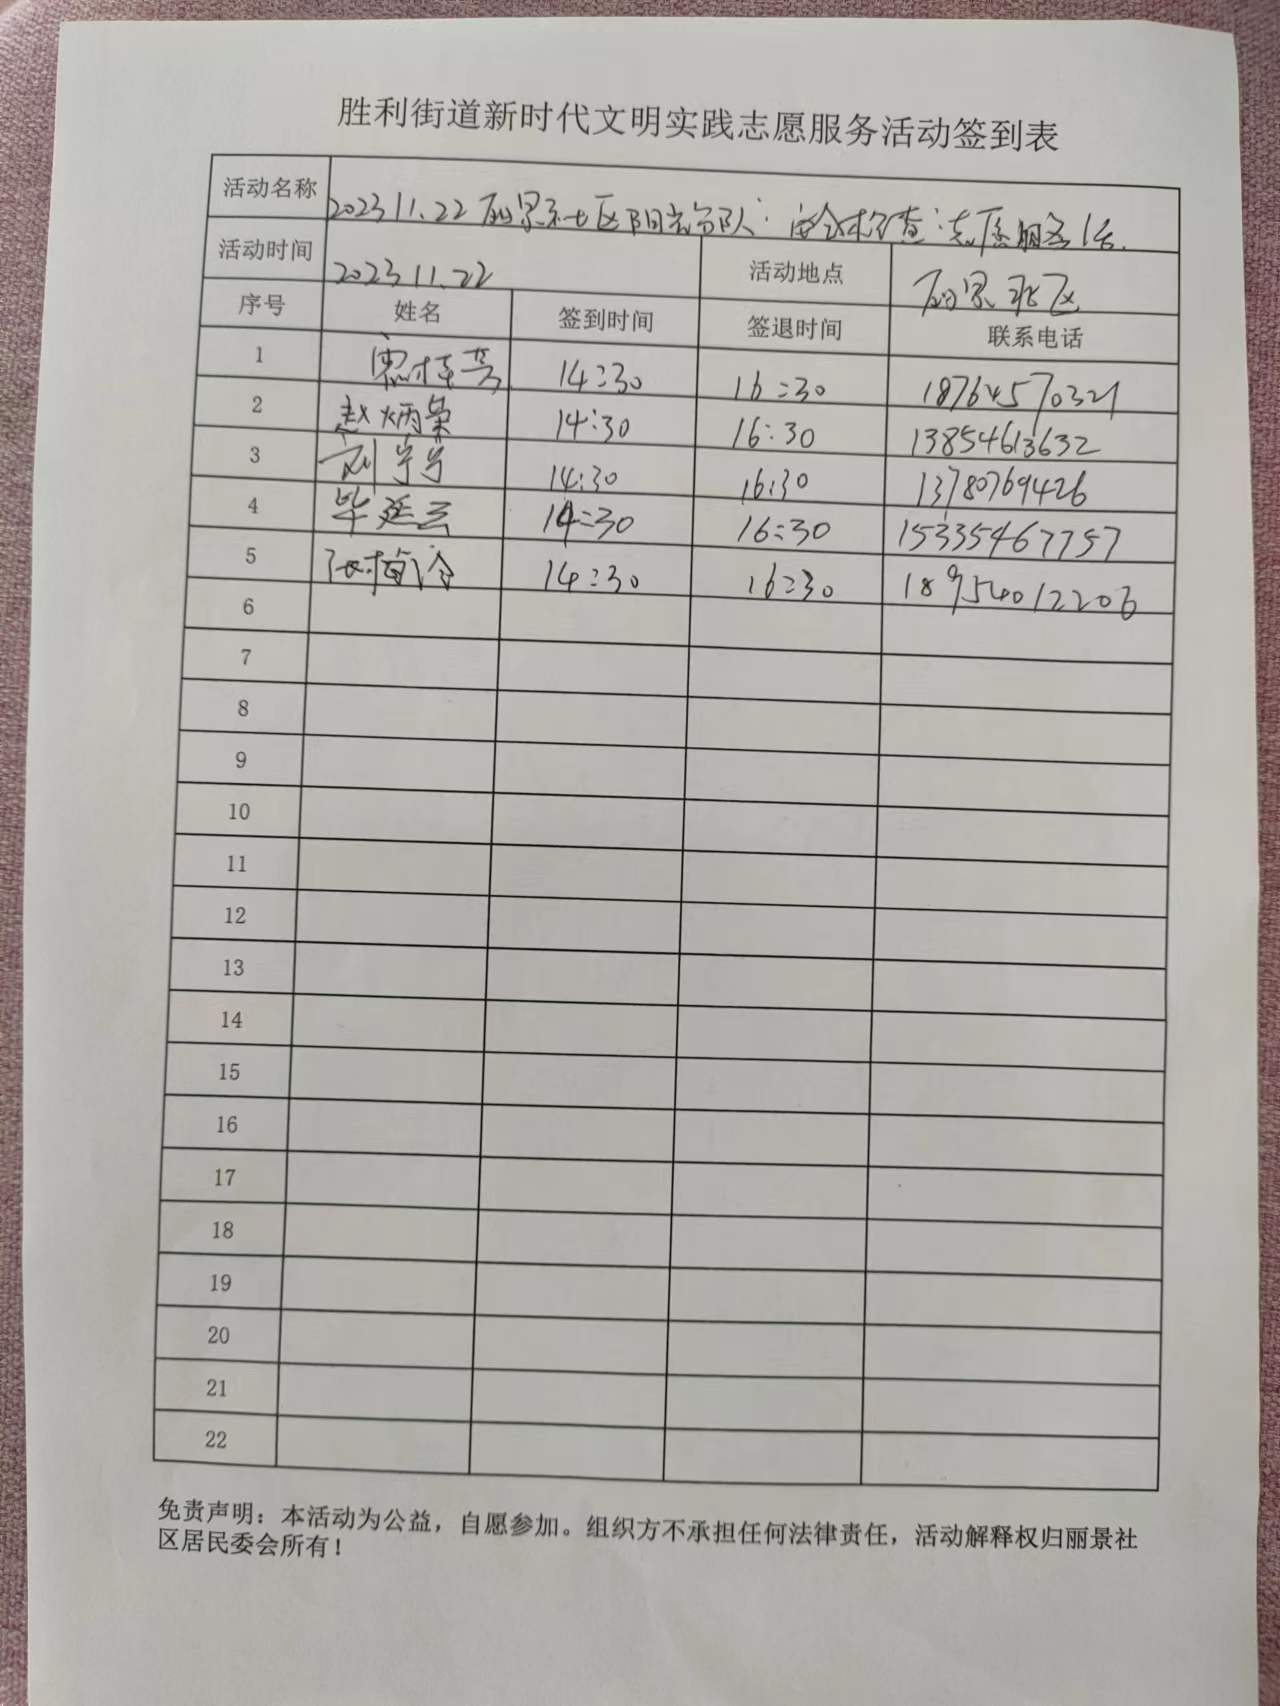 胜利街道新时代文明实践志愿服务活动签到表
活动名称 2023 11.22 丽景社区阳光分队:安全检查志愿服务活
活动时间 2023 11.22 活动地点 丽景北区
序号 姓名 签到时间 签退时间 联系电话
1 14:30 16:30 18764570321
2 赵炳荣 14:30 16:30 13854613632
3 刘宁宁 14:30 16:30 13780769426
4 毕延云 14:30 16:30 15335467757
5 14:30 16:30 18954012206
6
7
8
9
10
11
12
13
14
15
16
17
18
19
20
21
22
免责声明：本活动为公益，自愿参加。组织方不承担任何法律责任，活动解释权归丽景社
区居民委会所有！